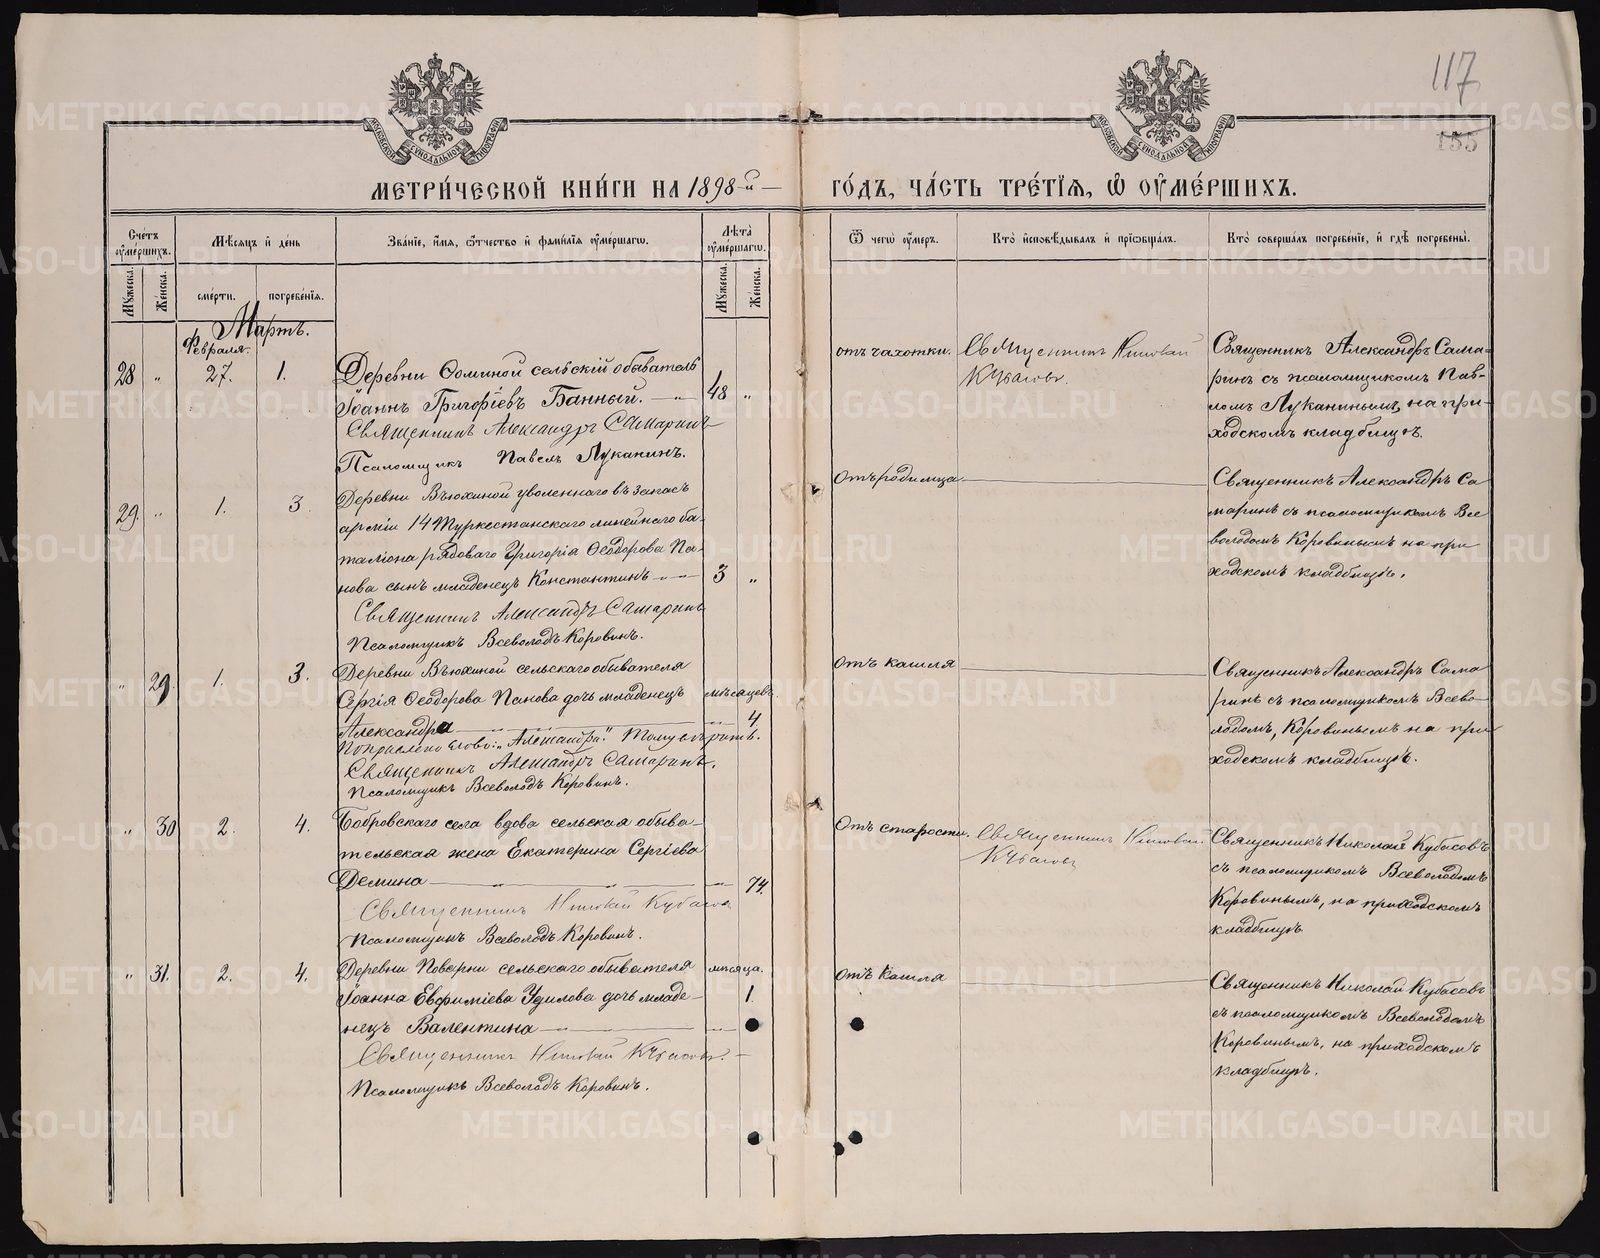 117
155
МОСКОВСКОЙ СѴНОДАЛЬНОЙ ТИПОГРАФІИ
МОСКОВСКОЙ СѴНОДАЛЬНОЙ ТИПОГРАФІИ
МЕТРИ́ЧЕСКОЙ КНИ́ГИ НА 1898-й —
ГО́ДЪ, ЧА́СТЬ ТРЕ́ТІѦ, Ѡ҆ ОУ҆МЕ́РШИХЪ.
Сче́тъ оу҆ме́ршихъ.
Мѣ́сяцъ и҆ де́нь
Зва́нїе, и҆́мѧ, ѻ҆́тчество и҆ фами́лїѧ оу҆ме́ршагѡ.
Лѣ́та оу҆ме́ршагѡ.
Ѿ чегѡ̀ оу҆́меръ.
Кто̀ и҆сповѣ́дывалъ и҆ прїѡбща́лъ.
Кто̀ соверша́лъ погребе́нїе, и҆ гдѣ̀ погребены̀.
Му́жеска.
Же́нска.
сме́рти.
погребе́нїѧ.
Му́жеска.
Же́нска.
Мартъ.
Февраля.
28 „ 27. 1.
Деревни Ѳоминой сельскій обыватель
Іоаннъ Григоріевъ Банный. — „ 48 „
Священникъ Александръ Самаринъ
Псаломщикъ Павелъ Луканинъ.
отъ чахотки.
Священникъ Николай
Кубасовъ.
Священникъ Александръ Сама-
ринъ съ псаломщикомъ Пав-
ломъ Луканинымъ, на при-
ходскомъ кладбищѣ.
29. „ 1. 3
Деревни Вьюхиной уволеннаго въ запасъ
арміи 14 Туркестанскаго линейнаго ба-
таліона рядоваго Григорія Ѳеодорова Па-
нова сынъ младенецъ Константинъ — 3 „
Священникъ Александръ Самаринъ
Псаломщикъ Всеволодъ Коровинъ.
Отъ родимца
Священникъ Александръ Са
маринъ съ псаломщикомъ Все
володомъ Коровинымъ на при
ходскомъ кладбищѣ.
„ 29. 1. 3.
Деревни Вьюхиной сельскаго обывателя
Сергія Ѳеодорова Панова дочь младенецъ мѣсяцевъ
Александра — „ 4.
Поправлено слово: „Александра." Тому вѣрить.
Священникъ Александръ Самаринъ.
Псаломщикъ Всеволодъ Коровинъ.
Отъ кашля
Священникъ Александръ Сама
ринъ съ псаломщикомъ Всево-
лодомъ, Коровинымъ на при
ходскомъ кладбищѣ.
„ 30 2. 4.
Бобровскаго села вдова сельская обыва-
тельская жена Екатерина Сергіева
Демина — „ — „ — 74.
Священникъ Николай Кубасовъ
Псаломщикъ Всеволодъ Коровинъ.
Отъ старости.
Священникъ Николай
Кубасовъ
Священникъ Николай Кубасовъ
съ псаломщикомъ Всеволодомъ
Коровинымъ, на приходскомъ
кладбищѣ
„ 31. 2. 4.
Деревни Поварни сельскаго обывателя мѣсяца.
Іоанна Евфиміева Удилова дочь младе- 1.
нецъ Валентина — „ —
Священникъ Николай Кубасовъ. —
Псаломщикъ Всеволодъ Коровинъ.
отъ кашля
Священникъ Николай Кубасовъ
съ псаломщикомъ Всеволодомъ
Коровинымъ, на приходскомъ
кладбищѣ.
METRIKI.GASO-URAL.RU